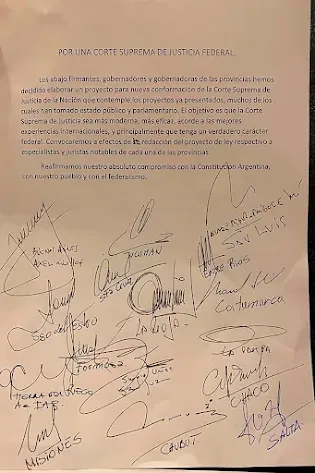 POR UNA CORTE SUPREMA DE JUSTICIA FEDERAL.
Los abajo firmantes, gobernadores y gobernadoras de las provincias hemos
decidido elaborar un proyecto para nueva conformación de la Corte Suprema de
Justicia de la Nación que contemple los proyectos ya presentados, muchos de los
cuales han tomado estado público y parlamentario. El objetivo es que la Corte
Suprema de Justicia sea más moderna, más eficaz, acorde a las mejores
experiencias internacionales, y principalmente que tenga un verdadero carácter
federal. Convocaremos a efectos de la redacción del proyecto de ley respectivo a
especialistas y juristas notables de cada una de las provincias.
Reafirmamos nuestro absoluto compromiso con la Constitución Argentina,
con nuestro pueblo y con el federalismo.
SAN LUIS
BUENOS AIRES
AXEL KICILLOF
TUCUMAN
ENTRE RIOS
STA CRUZ
Catamarca
SGO del ESTERO
LA RIOJA
LA PAMPA
FORMOSA
TIERRA DEL FUEGO
CHACO
MISIONES
CHUBUT
SALTA